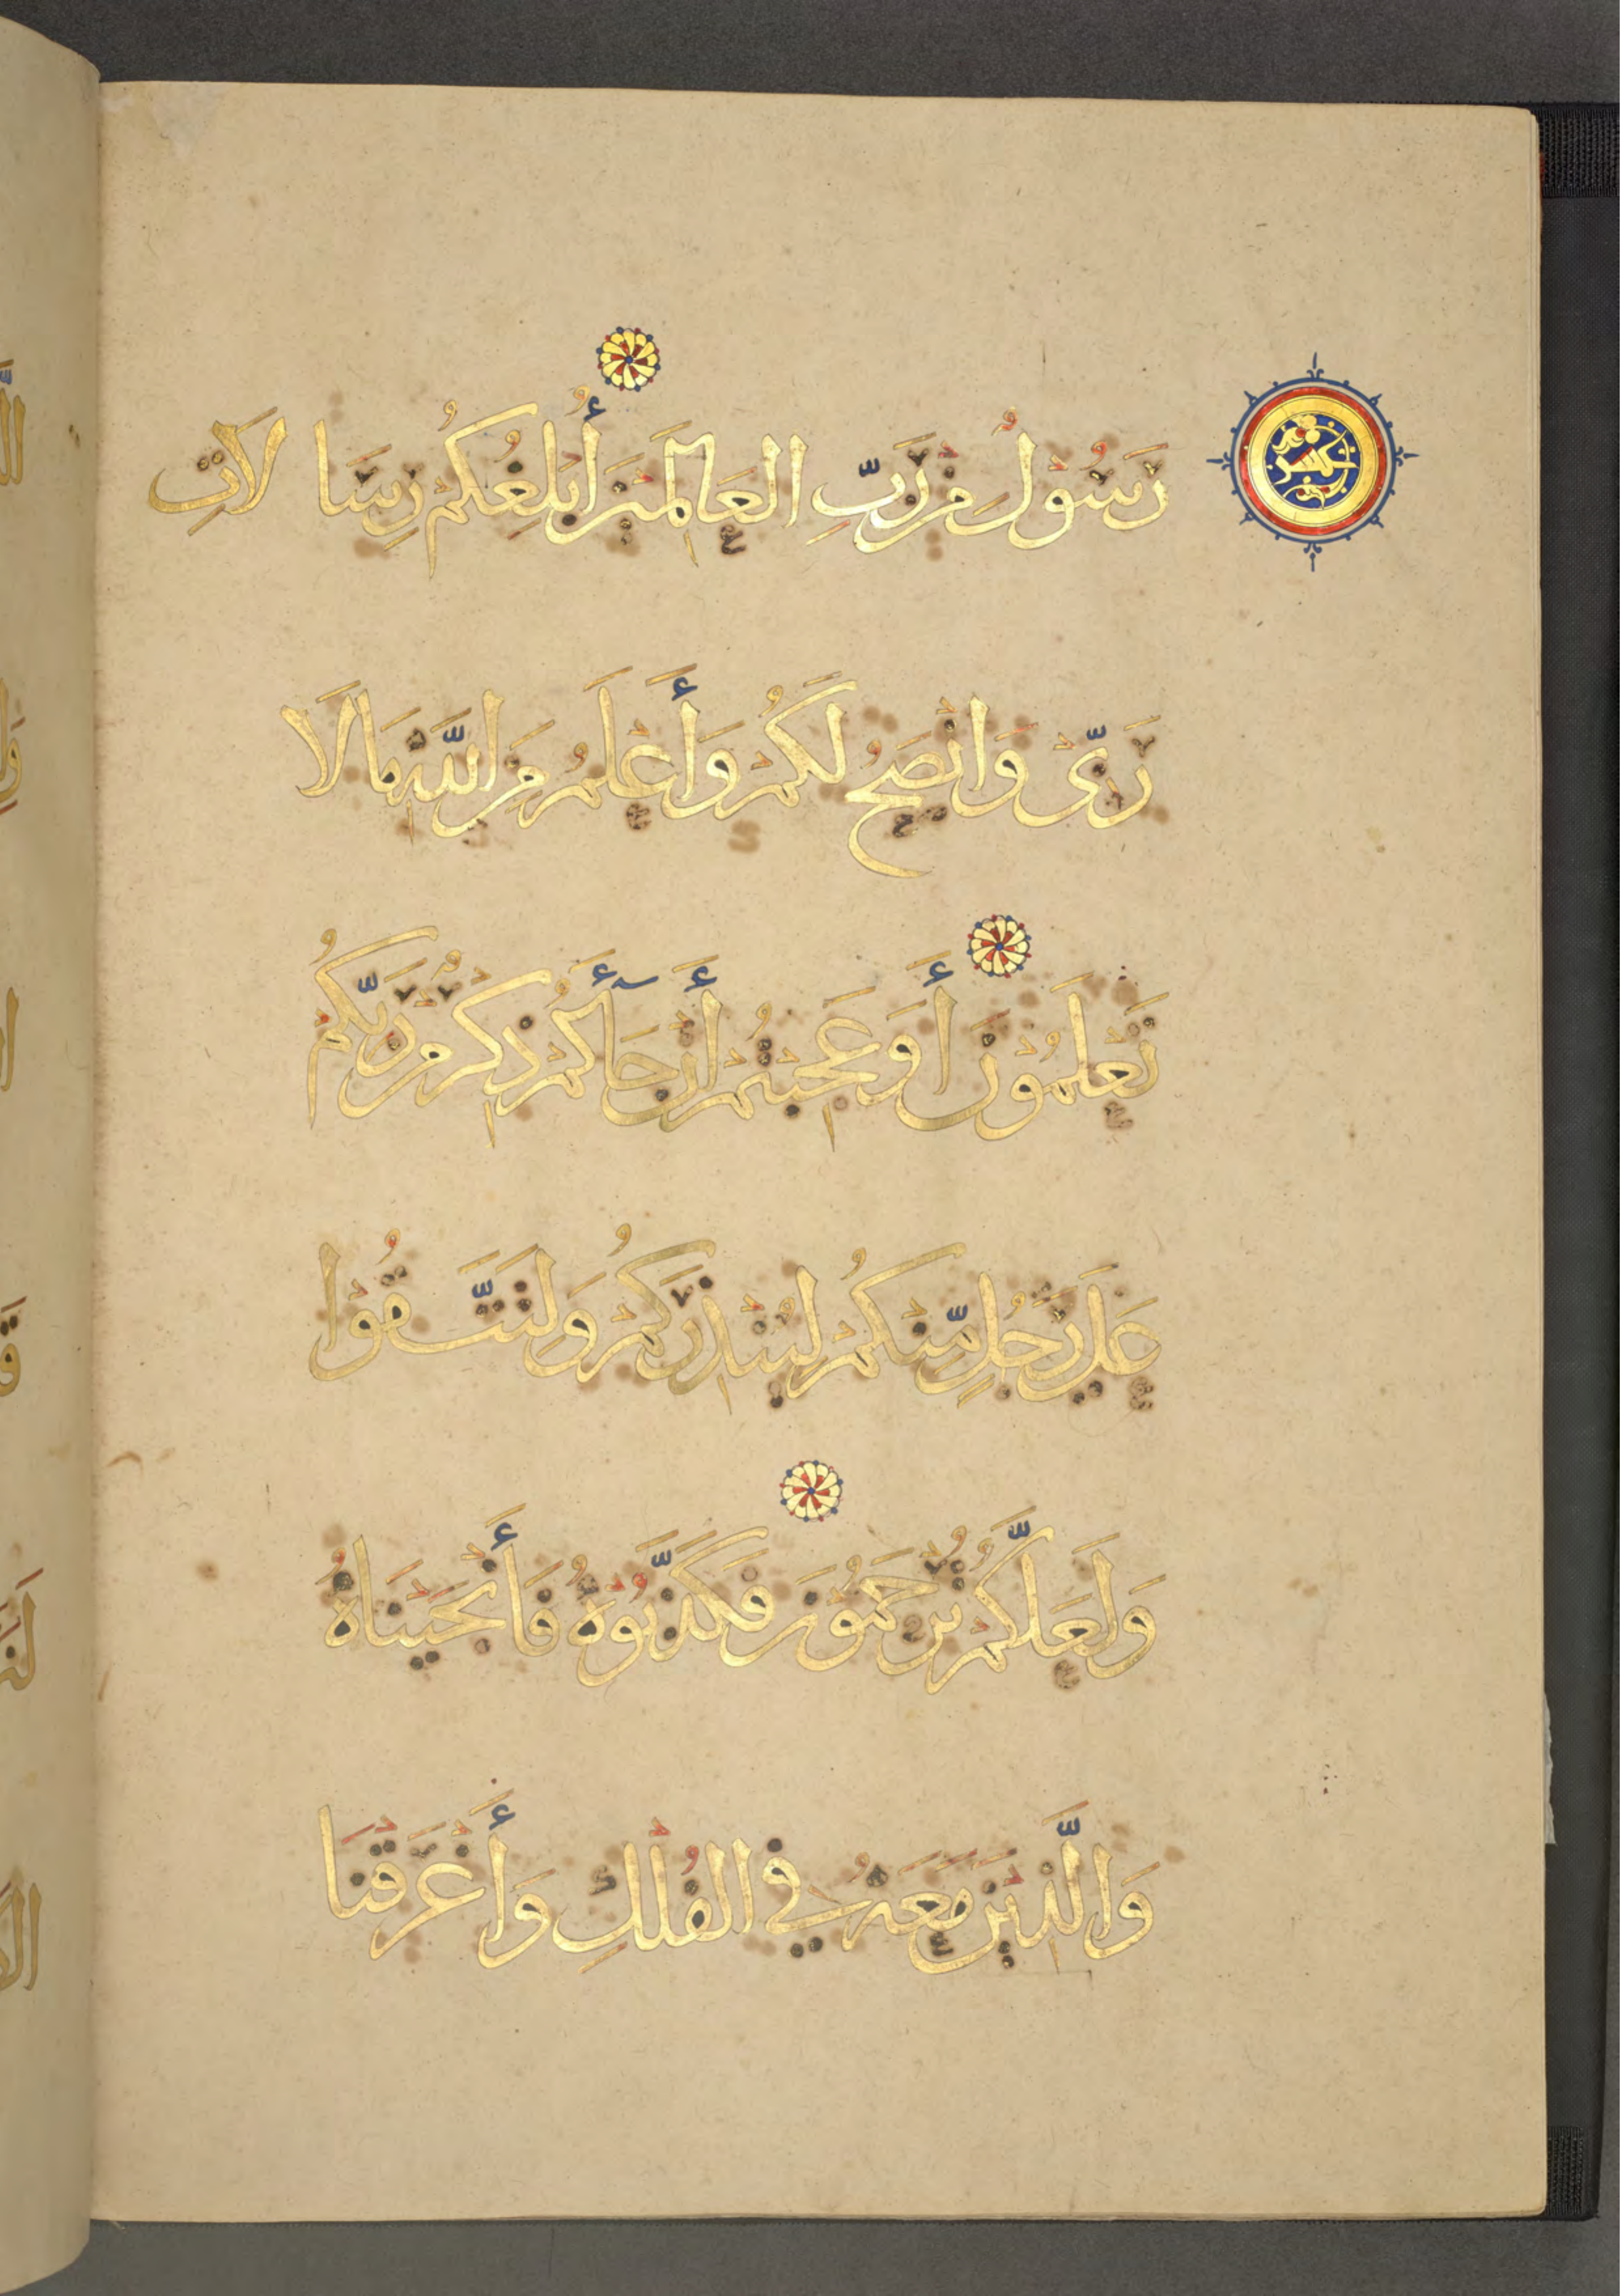 رَسُولٌ مِنْ رَبِّ العَالَمِيْنَ أُبَلِّغُكُمْ رِسَالَاتِ
رَبِّى وَاَنْصَحُ لَكُمْ وَأَعْلَمُ مِنَ اللَّهِ مَا لَا
تَعْلَمُوْنَ أَوَعَجِبْتُمْ أَنْ جَآءَكُمْ ذِكْرٌ مِنْ رَبِّكُمْ
عَلَى رَجُلٍ مِّنْكُمْ لِيُنْذِرَكُمْ وَلِتَتَّقُوْا
وَلَعَلَّكُمْ تُرْحَمُوْنَ فَكَذَّبُوْهُ فَأَنْجَيْنَاهُ
وَالَّذِيْنَ مَعَهُ فِي الفُلْكِ وَأَغْرَقْنَا